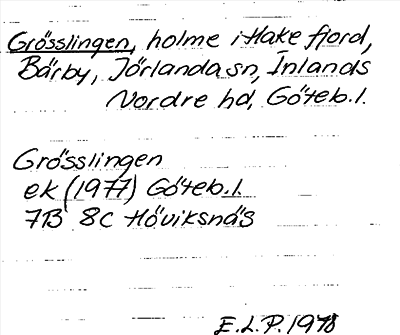 Grösslingen, holme i Hake fjord,
Bärby, Jörlanda sn, Inlands
Nordre hd, Göteb.l.
Grösslingen
ek (1977) Göteb.l.
7B 8c Höviksnäs
E.L.P. 1978